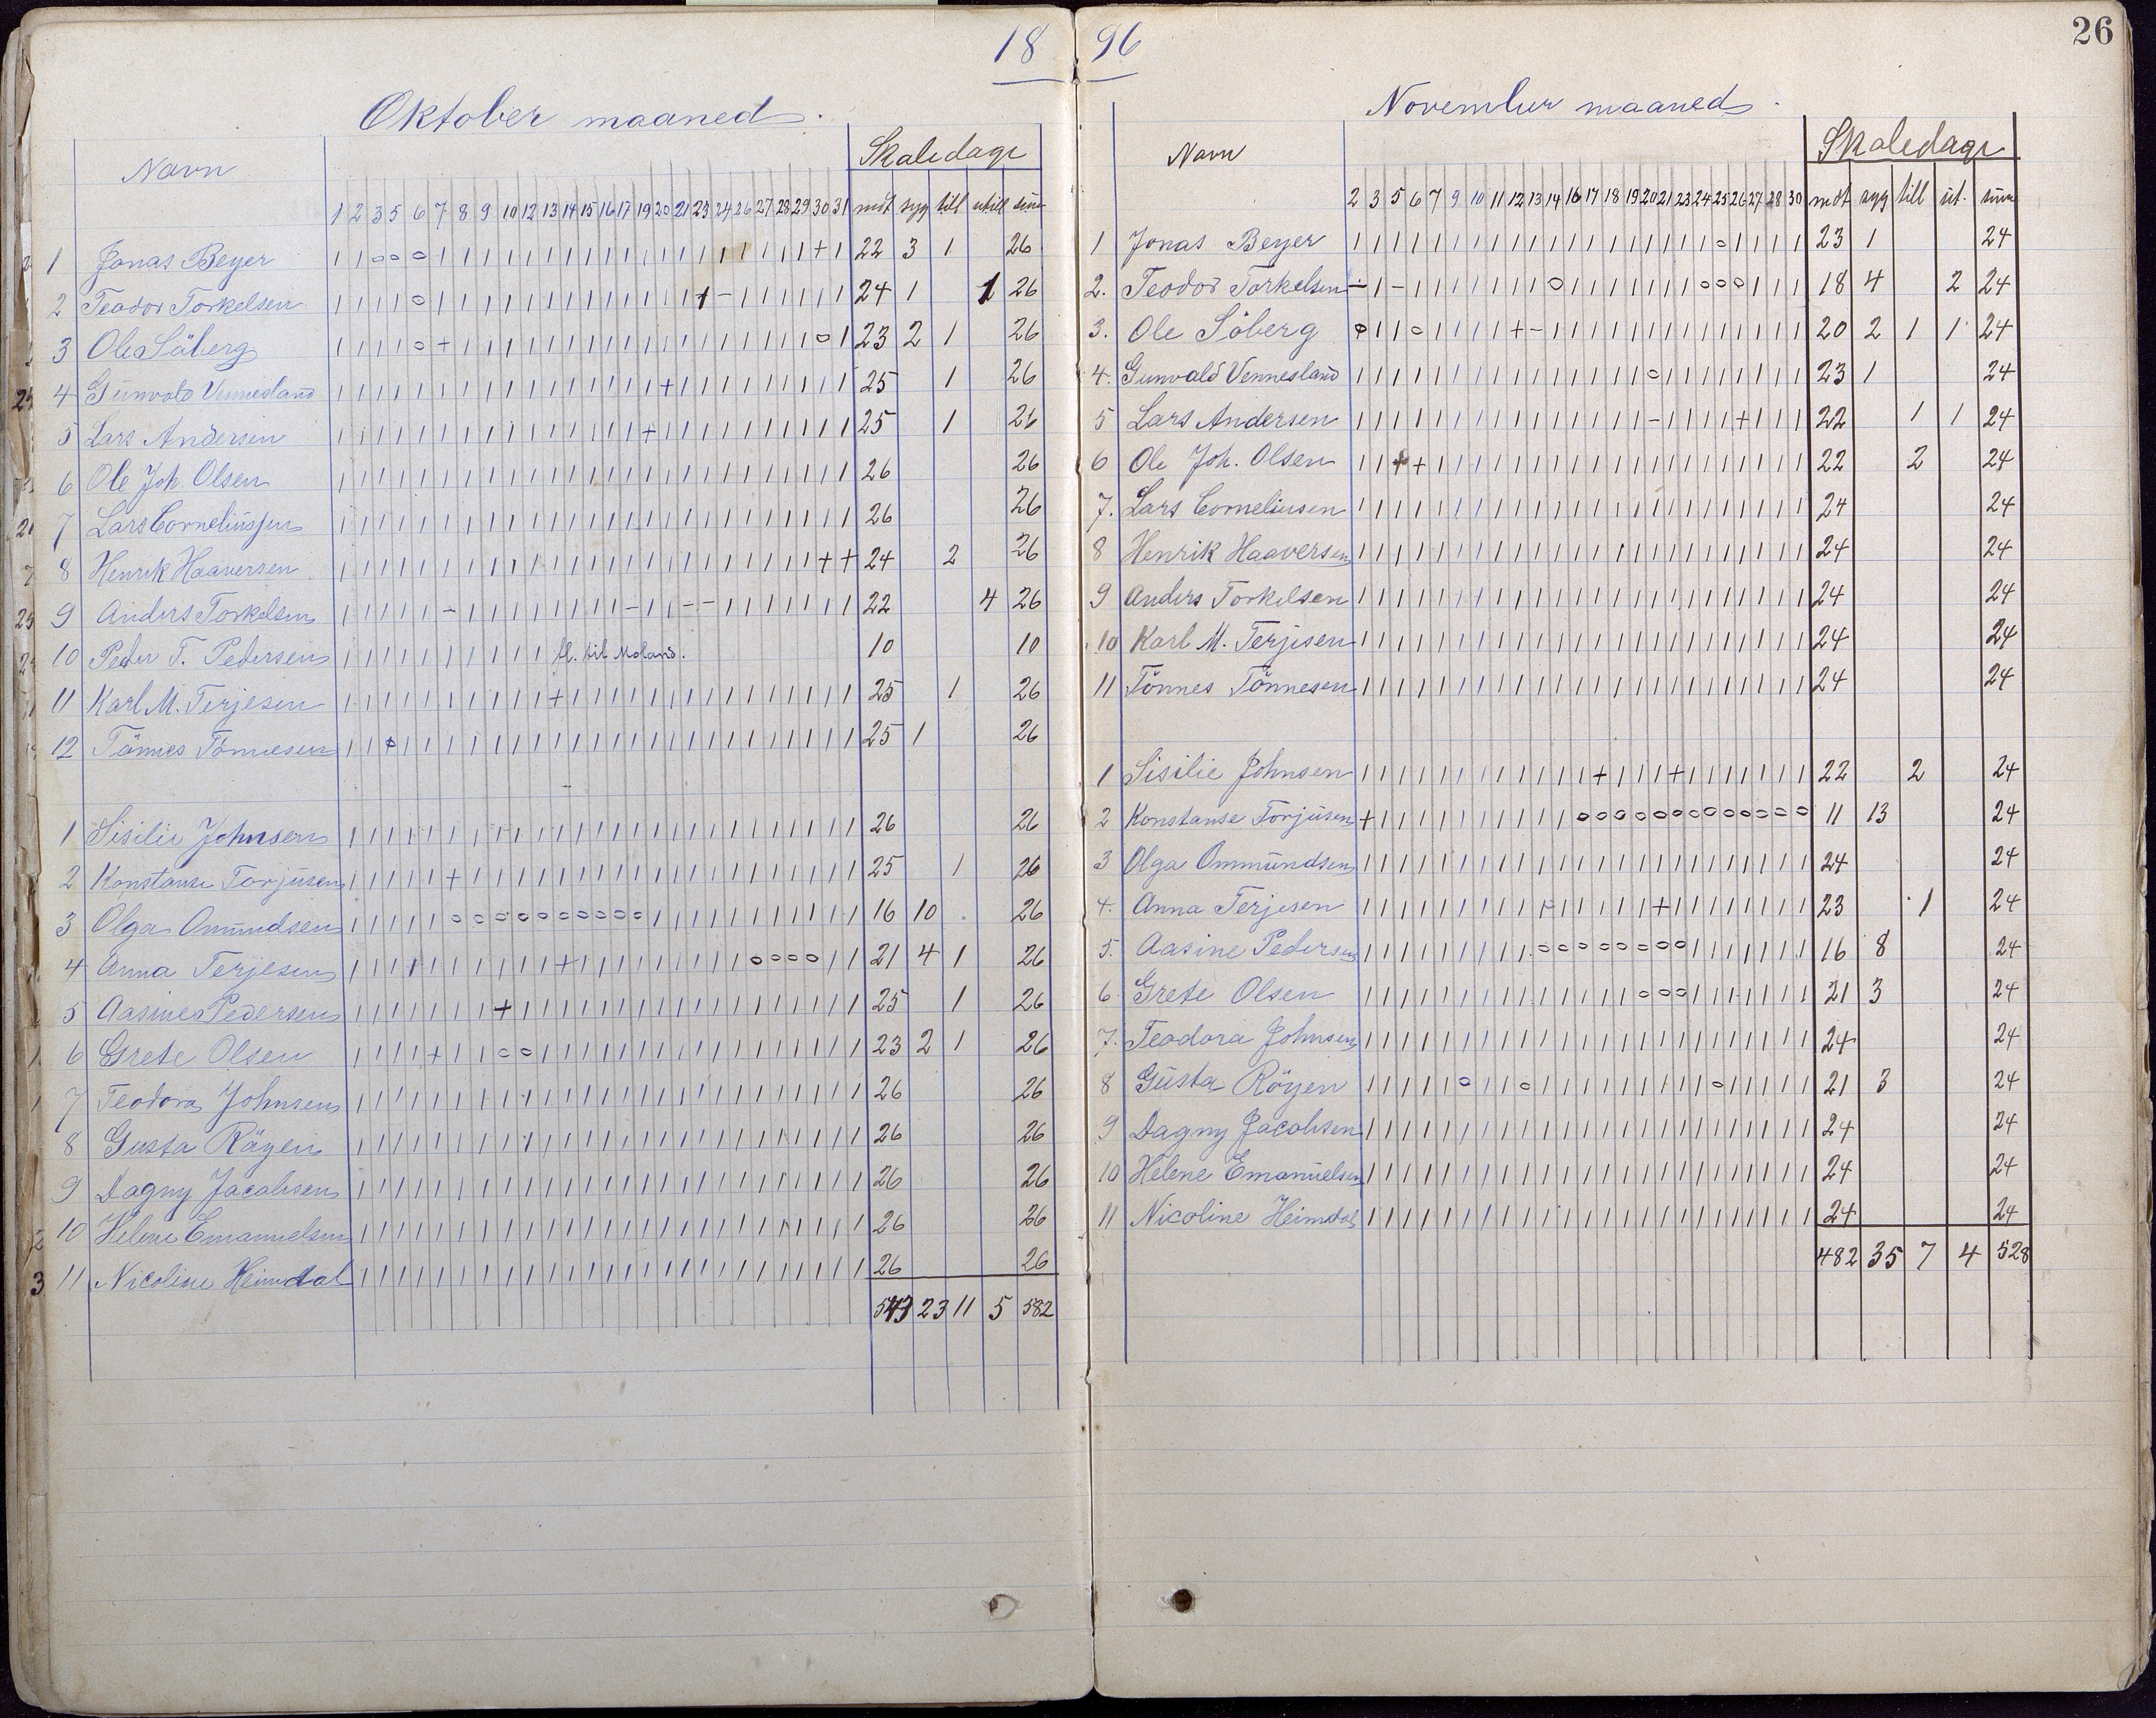 18
Oktober maaned.
Skoledage
Navn
1 2 3 5 6 7 8 9 10 12 13 14 15 16 17 19 20 21 23 24 26 27 28 29 30 31 mdt syg till utill sum
1 Jonas Beyer | | o o o | | | | | | | | | | | | | | | | | | | + | 22 3 1 26
2 Teodor Torkelsen | | | | o | | | | | | | | | | | | | | - | | | | | | 24 1 1 26
3 Ole Söberg | | | | o + | | | | | | | | | | | | | | | | | | o | 23 2 1 26
4 Gunvald Vennesland | | | | | | | | | | | | | | | | + | | | | | | | | | 25 1 26
5 Lars Andersen | | | | | | | | | | | | | | | + | | | | | | | | | | 25 1 26
6 Ole Joh. Olsen | | | | | | | | | | | | | | | | | | | | | | | | | | 26 26
7 Lars Corneliussen | | | | | | | | | | | | | | | | | | | | | | | | | | 26 26
8 Henrik Haaversen | | | | | | | | | | | | | | | | | | | | | | | | + + 24 2 26
9 Anders Torkelsen | | | | | - | | | | | | | | - | | - - | | | | | | | 22 4 26
10 Peder T. Pedersen | | | | | | | | | | fl. til Moland. 10 10
11 Karl M. Terjesen | | | | | | | | | | + | | | | | | | | | | | | | | | 25 1 26
12 Tönnes Tönnesen | | o | | | | | | | | | | | | | | | | | | | | | | | 25 1 26
1 Sisilie Johnsen | | | | | | | | | | | | | | | | | | | | | | | | | | 26 26
2 Konstanse Torjusen | | | | | + | | | | | | | | | | | | | | | | | | | | 25 1 26
3 Olga Omundsen | | | | | o o o o o o o o o o | | | | | | | | | | | 16 10 26
4 Anna Terjesen | | | | | | | | | | + | | | | | | | | | o o o o | | 21 4 1 26
5 Aasine Pedersen | | | | | | | + | | | | | | | | | | | | | | | | | | 25 1 26
6 Grete Olsen | | | | + | | o o | | | | | | | | | | | | | | | | | 23 2 1 26
7 Teodora Johnsen | | | | | | | | | | | | | | | | | | | | | | | | | | 26 26
8 Gusta Röyen | | | | | | | | | | | | | | | | | | | | | | | | | | 26 26
9 Dagny Jacobsen | | | | | | | | | | | | | | | | | | | | | | | | | | 26 26
10 Helene Emanuelsen | | | | | | | | | | | | | | | | | | | | | | | | | | 26 26
11 Nicoline Heimdal | | | | | | | | | | | | | | | | | | | | | | | | | | 26 26
543 23 11 5 582
96
26
November maaned.
Skoledage
Navn
2 3 5 6 7 9 10 11 12 13 14 16 17 18 19 20 21 23 24 25 26 27 28 30 mdt syg till ut. sum
1 Jonas Beyer | | | | | | | | | | | | | | | | | | | o | | | | 23 1 24
2. Teodor Torkelsen - | - | | | | | | | o | | | | | | | o o o | | | 18 4 2 24
3. Ole Söberg o | | o | | | | + - | | | | | | | | | | | | | | 20 2 1 1 24
4. Gunvald Vennesland | | | | | | | | | | | | | | | o | | | | | | | | 23 1 24
5 Lars Andersen | | | | | | | | | | | | | | | - | | | | + | | | 22 1 1 24
6 Ole Joh. Olsen | | + + | | | | | | | | | | | | | | | | | | | | 22 2 24
7. Lars Corneliusen | | | | | | | | | | | | | | | | | | | | | | | | 24 24
8 Henrik Haaversen | | | | | | | | | | | | | | | | | | | | | | | | 24 24
9 Anders Torkelsen | | | | | | | | | | | | | | | | | | | | | | | | 24 24
10 Karl M. Terjesen | | | | | | | | | | | | | | | | | | | | | | | | 24 24
11 Tönnes Tönnesen | | | | | | | | | | | | | | | | | | | | | | | | 24 24
1 Sisilie Johnsen | | | | | | | | | | | | + | | | + | | | | | | | 22 2 24
2 Konstanse Torjusen + | | | | | | | | | | o o o o o o o o o o o o o 11 13 24
3 Olga Ommundsen | | | | | | | | | | | | | | | | | | | | | | | | 24 24
4. Anna Terjesen | | | | | | | | | | | | | | | + | | | | | | | | 23 1 24
5. Aasine Pedersen | | | | | | | | | o o o o o o o o | | | | | | | 16 8 24
6. Grete Olsen | | | | | | | | | | | | | | o o o | | | | | | | 21 3 24
7. Teodora Johnsen | | | | | | | | | | | | | | | | | | | | | | | | 24 24
8 Gusta Röyen | | | | | o | | o | | | | | | | | | | o | | | | 21 3 24
9 Dagny Jacobsen | | | | | | | | | | | | | | | | | | | | | | | | 24 24
10 Helene Emanuelsen | | | | | | | | | | | | | | | | | | | | | | | | 24 24
11 Nicoline Heimdal | | | | | | | | | | | | | | | | | | | | | | | | 24 24
482 35 7 4 528